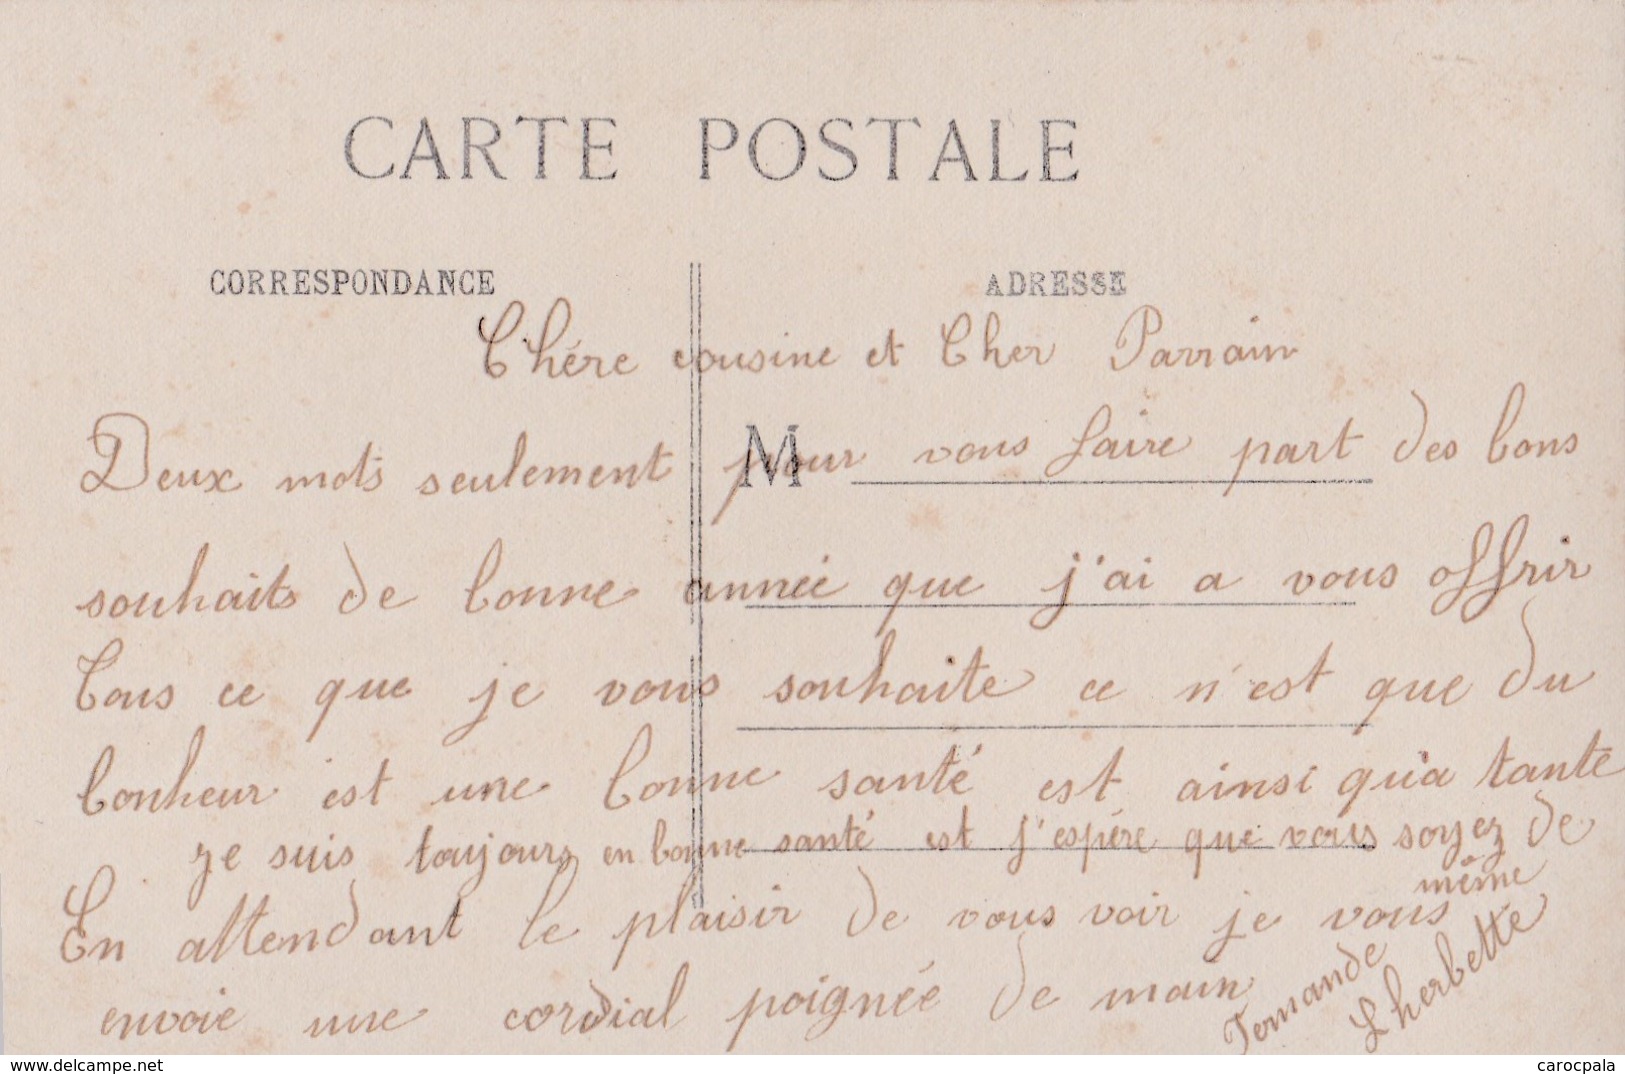 CARTE POSTALE
CORRESPONDANCE
ADRESSE
Chére cousine et Cher Parrain
M
Deux mots seulement pour vous faire part des bons
souhaits de bonne année que j'ai a vous offrir
Tous ce que je vous souhaite ce n'est que du
bonheur est une bonne santé est ainsi qu'a tante
je suis toujours en bonne santé est j'espére que vous soyez de
même
En attendant le plaisir de vous voir je vous
envoie une cordial poignée de main
Lherbette
https://www.delcampe.net
carocpala